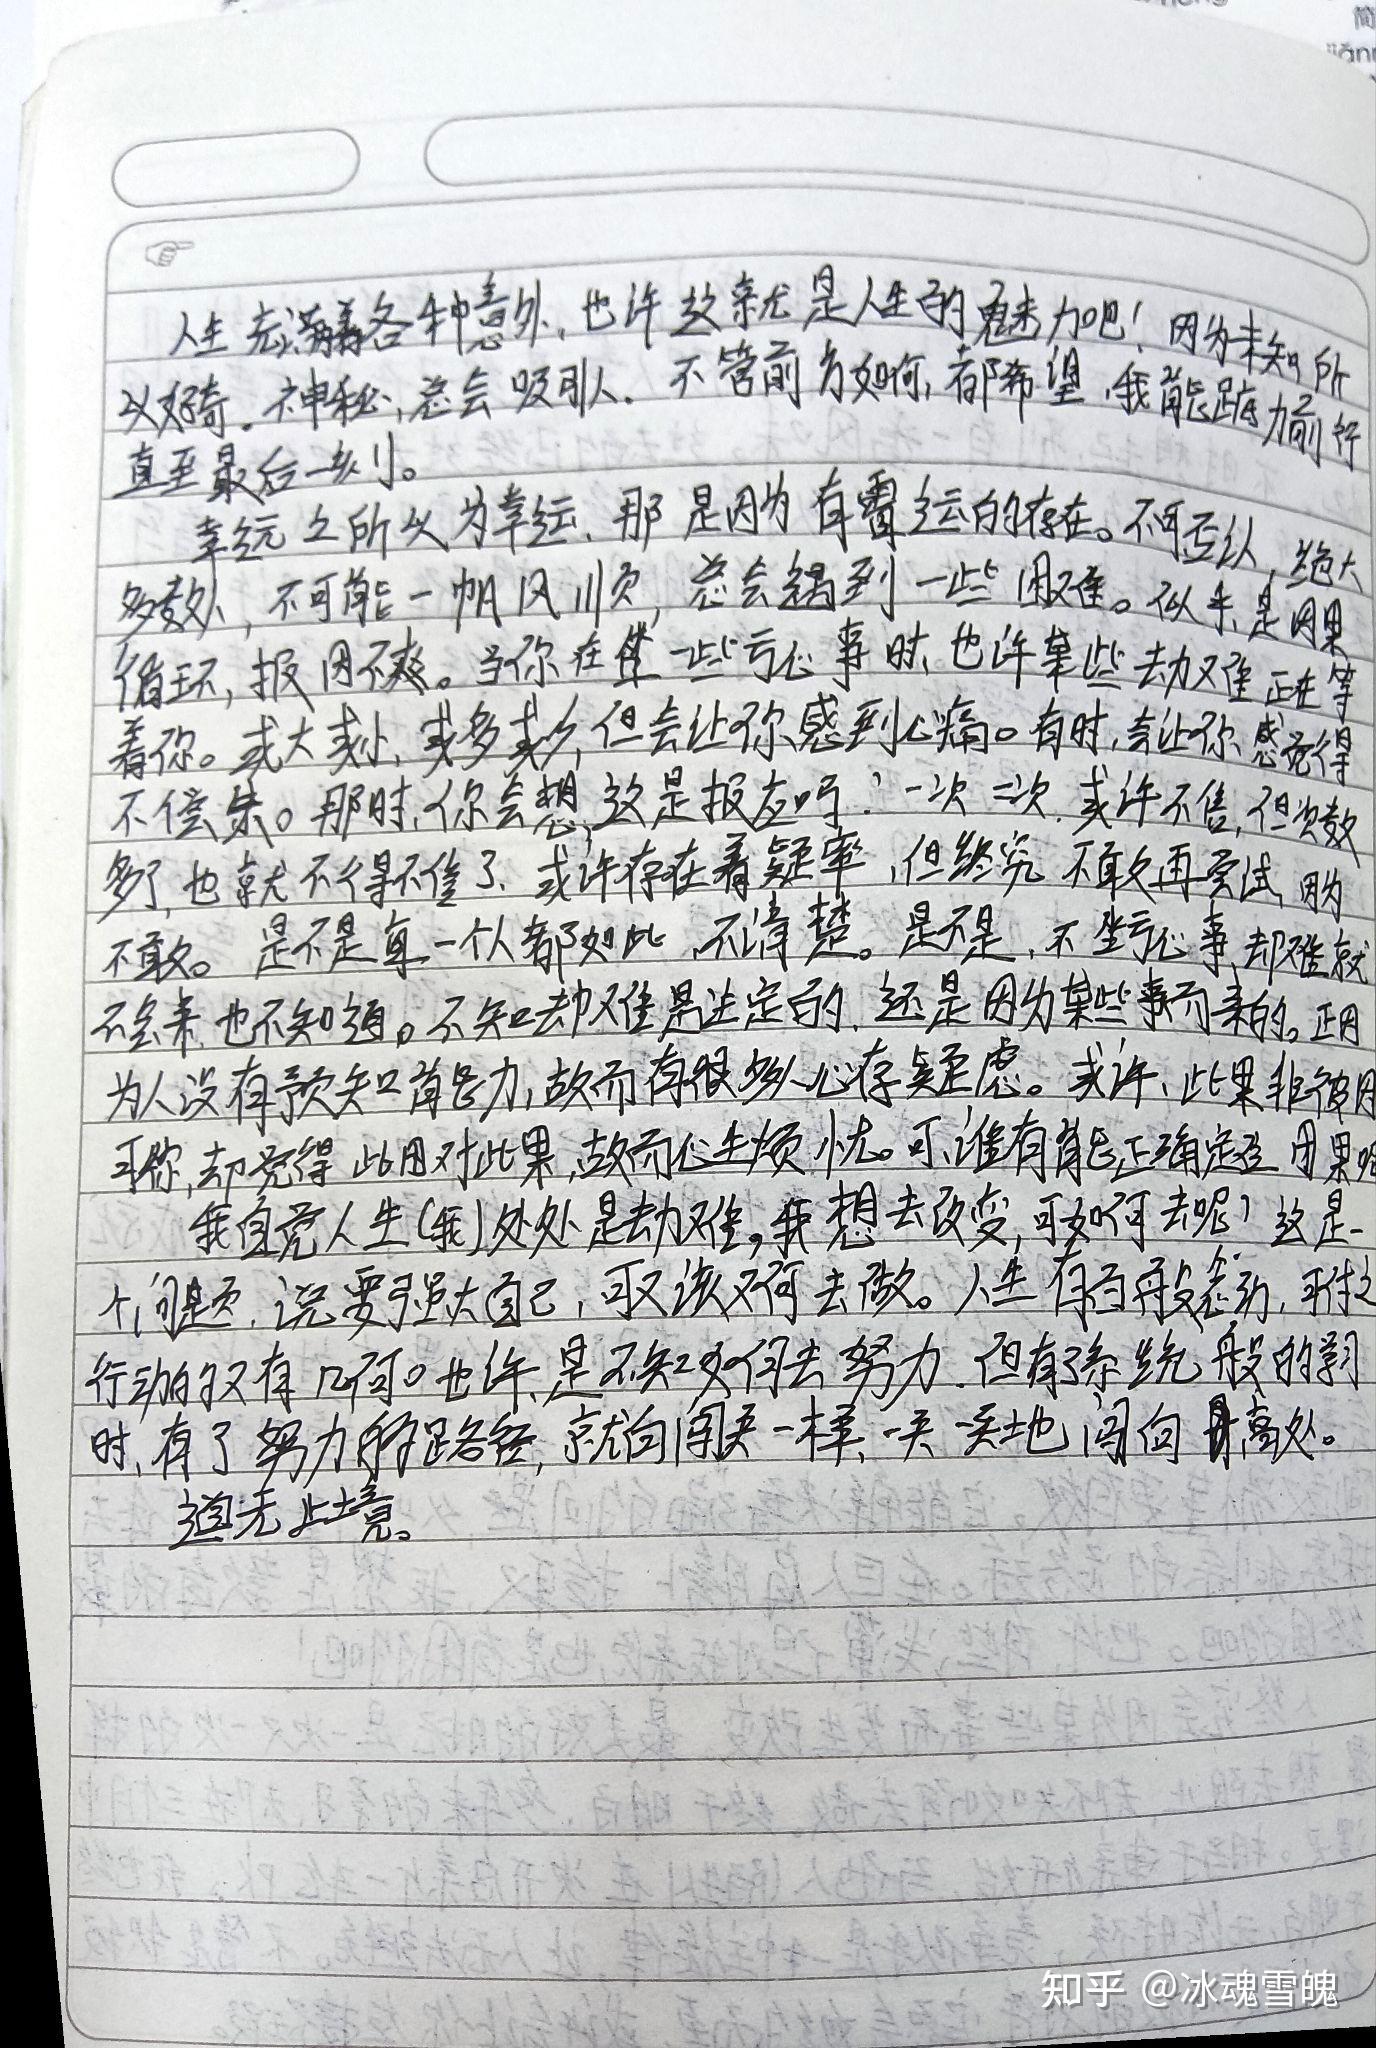 简
人生充满着各种意外,也许这就是人生的魅力吧!因为未知所
以好奇。神秘,总会吸引人.不管前方如何,都希望,我能砥力前行
直至最后一刻。
幸运之所以为幸运,那是因为有霉运的存在。不可否认,绝大
多数人,不可能一帆风顺,总会遇到一些困难。似乎是因果
循环,报因不爽。当你在做一些亏心事时,也许某些劫难正在等
着你。或大或小,或多或少,但会让你感到心痛。有时,会让你感觉得
不偿失。那时,你会想,这是报应吗?一次二次,或许不信,但次数
多了,也就不得不信了,或许存在着疑率,但终究不敢再尝试,因为
不敢。是不是真一个人都如此,不清楚。是不是,不坐亏心事,劫难就
不会来,也不知道。不知劫难是注定的,还是因为某些事而来的。正因
为人没有预知能力,故而有很多人心存疑虑。或许,此果非彼因
可你,却觉得此因对此果,故而心生烦忧。可,谁有能正确定这因果呢
我自觉人生(我)处处是劫难,我想去改变,可如何去呢?这是一
个问题,说要强大自己,可又该如何去做。人生有百般感动,可付之
行动的又有几何。也许,是不知如何去努力,但有了系统般的学习
时,有了努力的路径,就向闯关一样,一关一关地闯向高处。
道无止境。
知乎 @冰魂雪魄